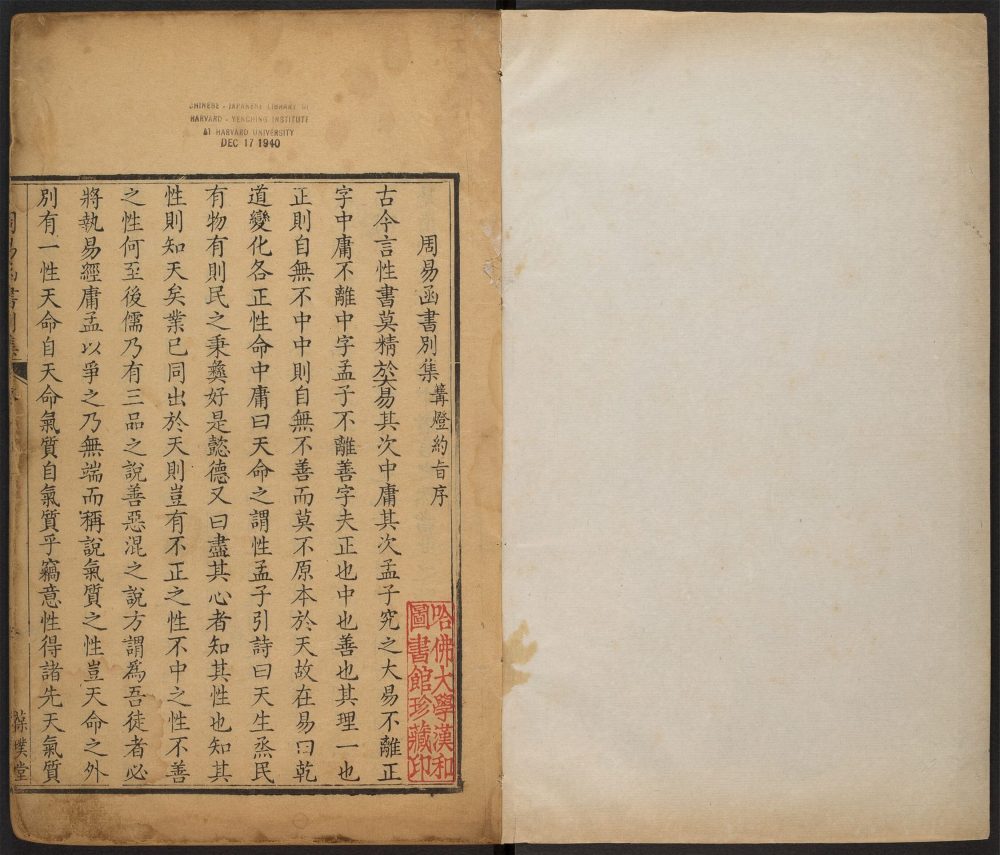 CHINESE - JAPANESE LIBRARY OF
HARVARD - YENCHING INSTITUTE
AT HARVARD UNIVERSITY
DEC 17 1940
周易函書別集 篝燈約旨序
古今言性書莫精於大易其次中庸其次孟子究之大易不離正
字中庸不離中字孟子不離善字夫正也中也善也其理一也
正則自無不中中則自無不善而莫不原本於天故在易曰乾
道變化各正性命中庸曰天命之謂性孟子引詩曰天生烝民
有物有則民之秉彝好是懿德又曰盡其心者知其性也知其
性則知天矣業已同出於天則豈有不正之性不中之性不善
之性何至後儒乃有三品之說善惡混之說方謂爲吾徒者必
將執易經庸孟以爭之乃無端而稱說氣質之性豈天命之外
別有一性天命自天命氣質自氣質乎竊意性得諸先天氣質
周易函書別集
葆璞堂
哈佛大學漢和
圖書館珍藏印